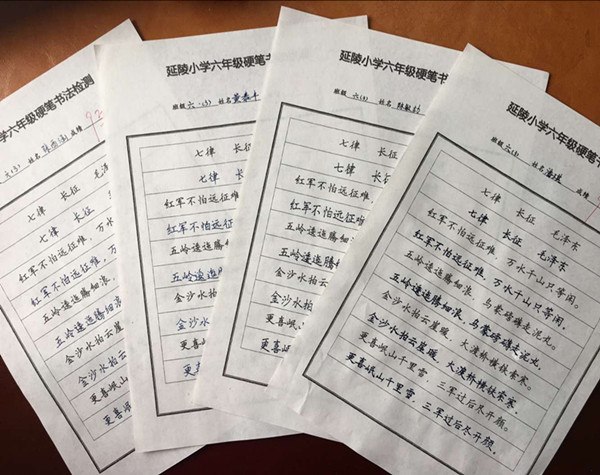 学六年级硬笔书法检测
六(3) 姓名 成绩 92
七律 长征 毛泽
七律 长征 毛泽
红军不怕远征难,万水
红军不怕远征难,万水
五岭逶迤腾细浪,
五岭逶迤腾细浪
金沙水拍云崖
金沙水拍云
更喜岷山
更喜岷
延陵小学六年级硬笔书法
班级 六(3) 姓名
七律 长
七律 长
红军不怕远征
红军不怕远征
五岭逶迤腾
五岭逶迤腾
金沙水拍
金沙水拍
更喜岷
更喜
延陵小学六年级硬笔书
班级 六(3) 姓名
七律 长征
七律 长征
红军不怕远征难
红军不怕远征难
五岭逶迤腾细
五岭逶迤腾
金沙水拍云
金沙水拍云
更喜岷山
更喜岷
延陵小学六年级硬笔书法
班级 六(3) 姓名 潘瑾 成绩
七律 长征 毛泽东
七律 长征 毛泽东
红军不怕远征难,万水千山只等闲。
红军不怕远征难,万水千山只等闲。
五岭逶迤腾细浪,乌蒙磅礴走泥丸。
五岭逶迤腾细浪,乌蒙磅礴走泥丸。
金沙水拍云崖暖,大渡桥横铁索寒。
金沙水拍云崖暖,大渡桥横铁索寒。
更喜岷山千里雪,三军过后尽开颜。
更喜岷山千里雪,三军过后尽开颜。